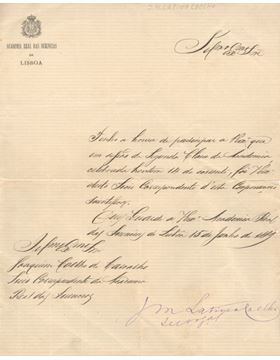 J.M. LATINO COELHO
ACADEMIA REAL DAS SCIENCIAS
DE
LISBOA
Tenho a honra de participar a V. Exa. que
em sessão da Segunda Classe da Academia
celebrada hontem 14 do corrente, foi V. Exa.
Socio Correspondente d'esta Corporação
Scientifica.
Deus Guarde a V. Exa. Academia Real
das Sciencias de Lisboa 15 de Junho de
Joaquim Coelho de Carvalho
Socio Correspondente da Academia
Real das Sciencias
J M Latino Coelho